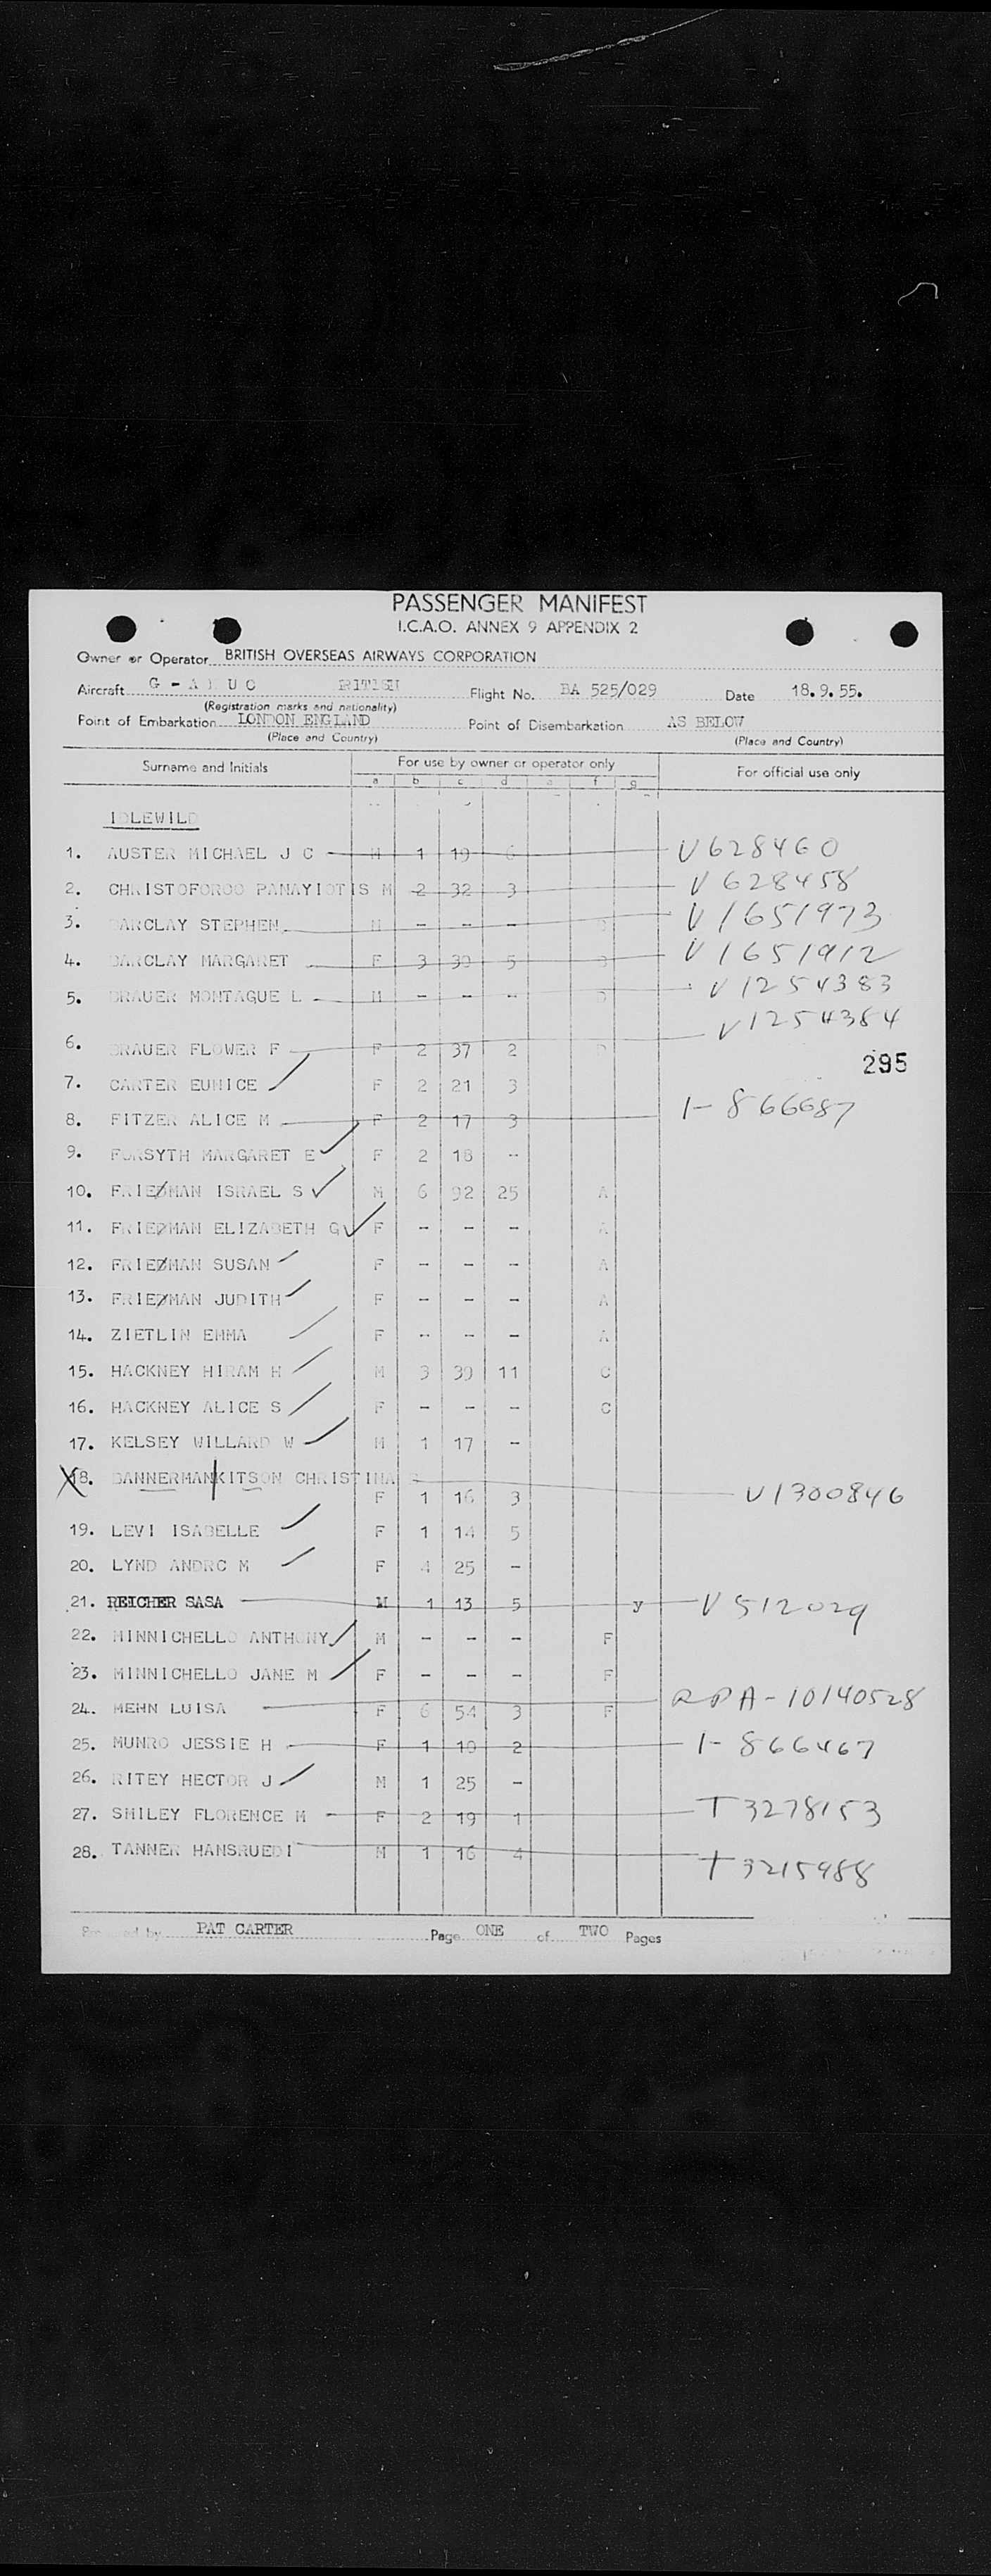 PASSENGER MANIFEST
I.C.A.O. ANNEX 9 APPENDIX 2
Owner or Operator BRITISH OVERSEAS AIRWAYS CORPORATION
Aircraft G - A U C Flight No. BA 525/029 Date 18.9.55.
(Registration marks and nationality)
Point of Embarkation LONDON ENGLAND Point of Disembarkation AS BELOW
(Place and Country) (Place and Country)
Surname and Initials For use by owner or operator only For official use only
a b c d e f g
IDLEWILD
1. AUSTER MICHAEL J C M 1 19 6 V628460
2. CHRISTOFOROO PANAYIOTIS M 2 32 3 V628458
3. BARCLAY STEPHEN M - - - B V1651973
4. BARCLAY MARGARET F 3 39 5 B V1651912
5. BRAUER MONTAGUE L M - - - D V1254383
6. BRAUER FLOWER F F 2 37 2 D V1254384
295
7. CARTER EUNICE F 2 21 3
8. FITZER ALICE M F 2 17 3 1-866687
9. FORSYTH MARGARET E F 2 18 -
10. FRIEDMAN ISRAEL S M 6 92 25 A
11. FRIEDMAN ELIZABETH G F - - - A
12. FRIEDMAN SUSAN F - - - A
13. FRIEDMAN JUDITH F - - - A
14. ZIETLIN EMMA F - - - A
15. HACKNEY HIRAM H M 3 39 11 C
16. HACKNEY ALICE S F - - - C
17. KELSEY WILLARD W M 1 17 -
18. BANNERMAN KITSON CHRISTINA
F 1 16 3 V1300846
19. LEVI ISABELLE F 1 14 5
20. LYND ANDRC M F 4 25 -
21. REICHER SASA M 1 13 5 y V512029
22. MINNICHELLO ANTHONY M - - - F
23. MINNICHELLO JANE M F - - - F
24. MEHN LUISA F 6 54 3 F RPA-10140528
25. MUNRO JESSIE H F 1 19 2 1-866467
26. RITEY HECTOR J M 1 25 -
27. SMILEY FLORENCE M F 2 19 1 T3278153
28. TANNER HANSRUEDI M 1 16 4 T3215988
Prepared by PAT CARTER Page ONE of TWO Pages